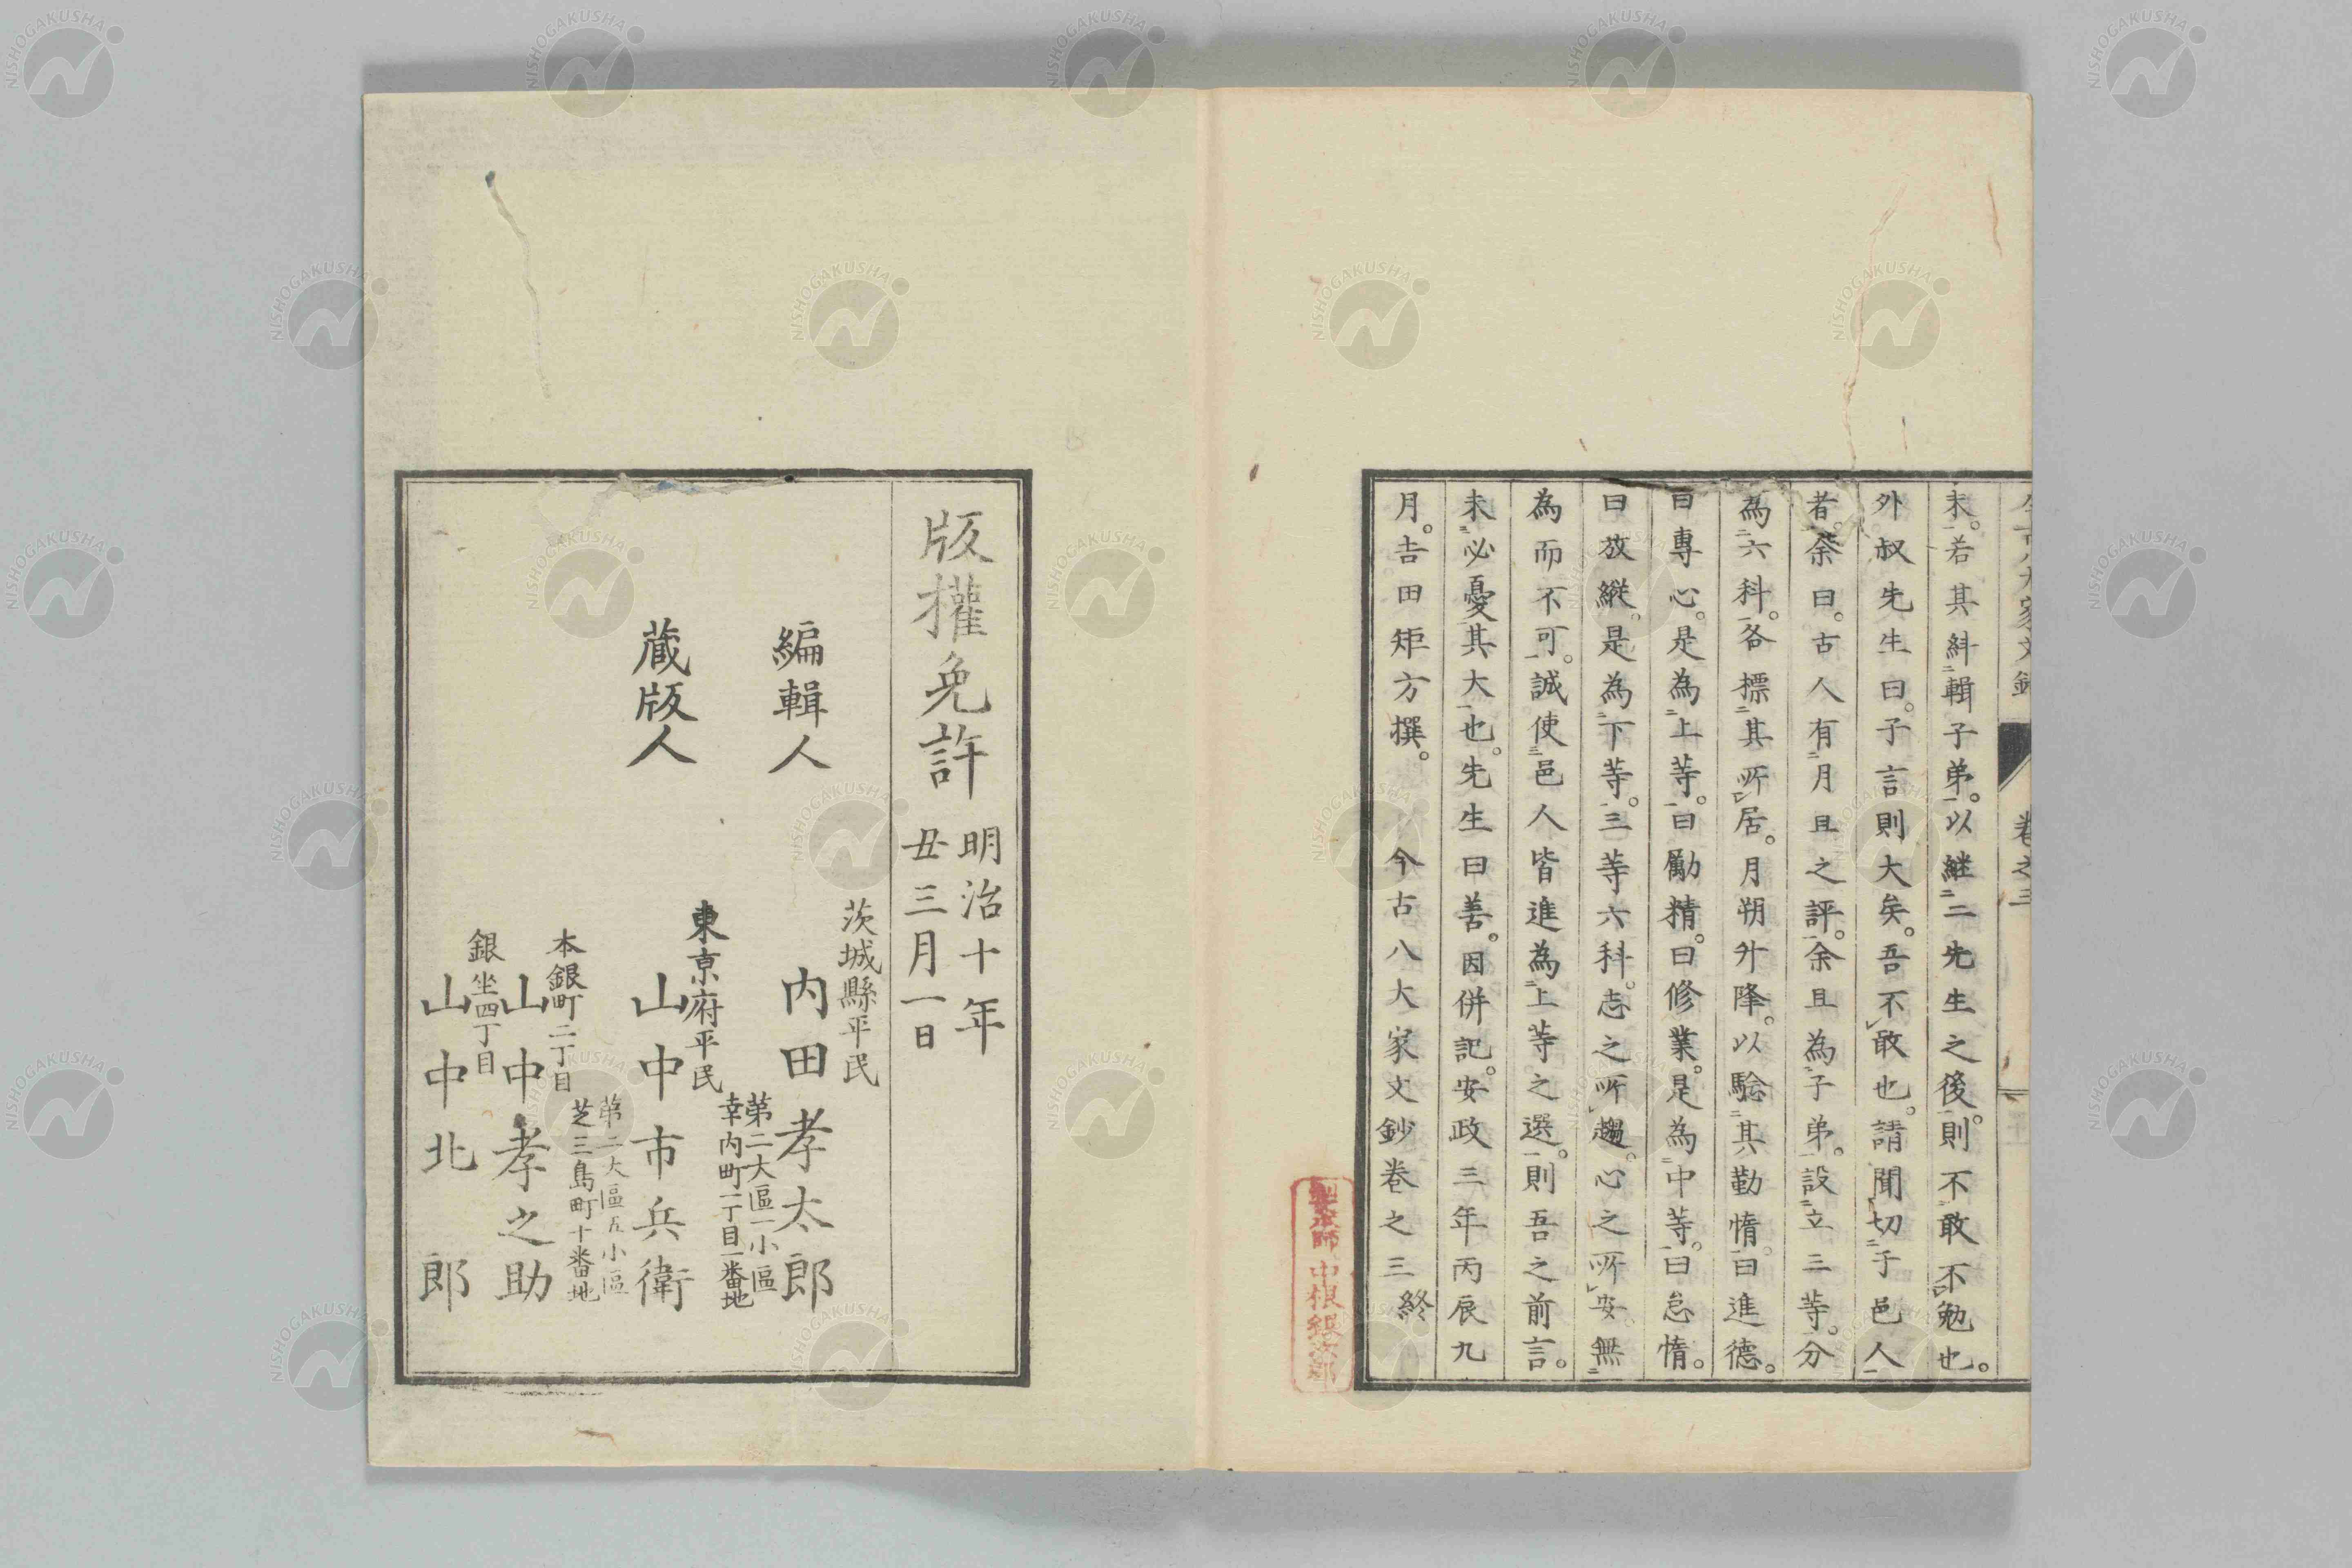 今古八大家文鈔
卷之三
未。若其糾輯子弟。以継二先生之後。則不敢不勉也。
外叔先生曰。子言則大矣。吾不敢也。請聞切于邑人
者。余曰。古人有月旦之評。余且為子弟。設立三等。分
為六科。各標其所居。月朔升降。以驗其勤惰。曰進德。
曰專心。是為上等。曰勵精。曰修業。是為中等。曰怠惰。
曰放縱。是為下等。三等六科。志之所趨。心之所安。無
為而不可。誠使邑人皆進為上等之選。則吾之前言。
未必憂其大也。先生曰善。因併記。安政三年丙辰九
月。吉田矩方撰。
今古八大家文鈔卷之三終
製本師 中根銀次郎
版權免許
明治十年
丑三月一日
編輯人
茨城縣平民
内田孝太郎
第二大區一小區
幸内町一丁目一番地
蔵版人
東京府平民
山中市兵衛
第二大區五小區
芝三島町十番地
本銀町二丁目
山中孝之助
銀坐四丁目
山中北郎
NISHOGAKUSHA